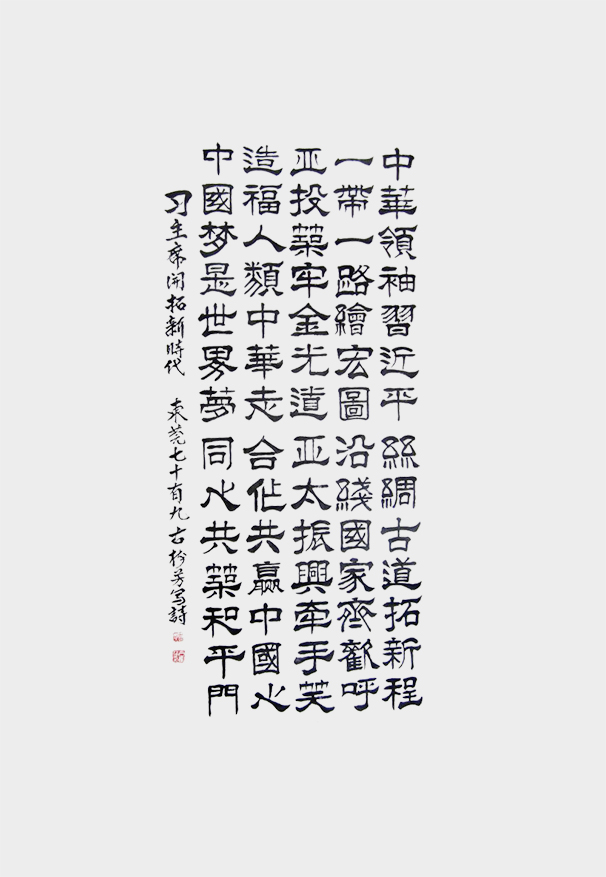 中華領袖習近平絲綢古道拓新程
一帶一路繪宏圖沿綫國家齊歡呼
亚投築牢金光道亚太振興牽手笑
造福人類中華走合作共赢中國心
中國梦是世界夢同心共築和平門
习主席開拓新時代 東莞七十有九古枌芳写詩